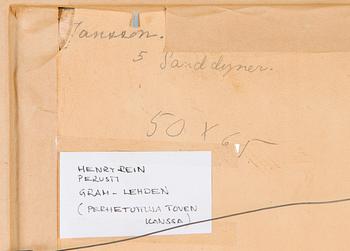 Jansson.
5 Sanddyner.
50 X 65
HENRY REIN
PERUSTI
GRAM - LEHDEN
(PERHETUTTUJA TOVEN
KANSSA)